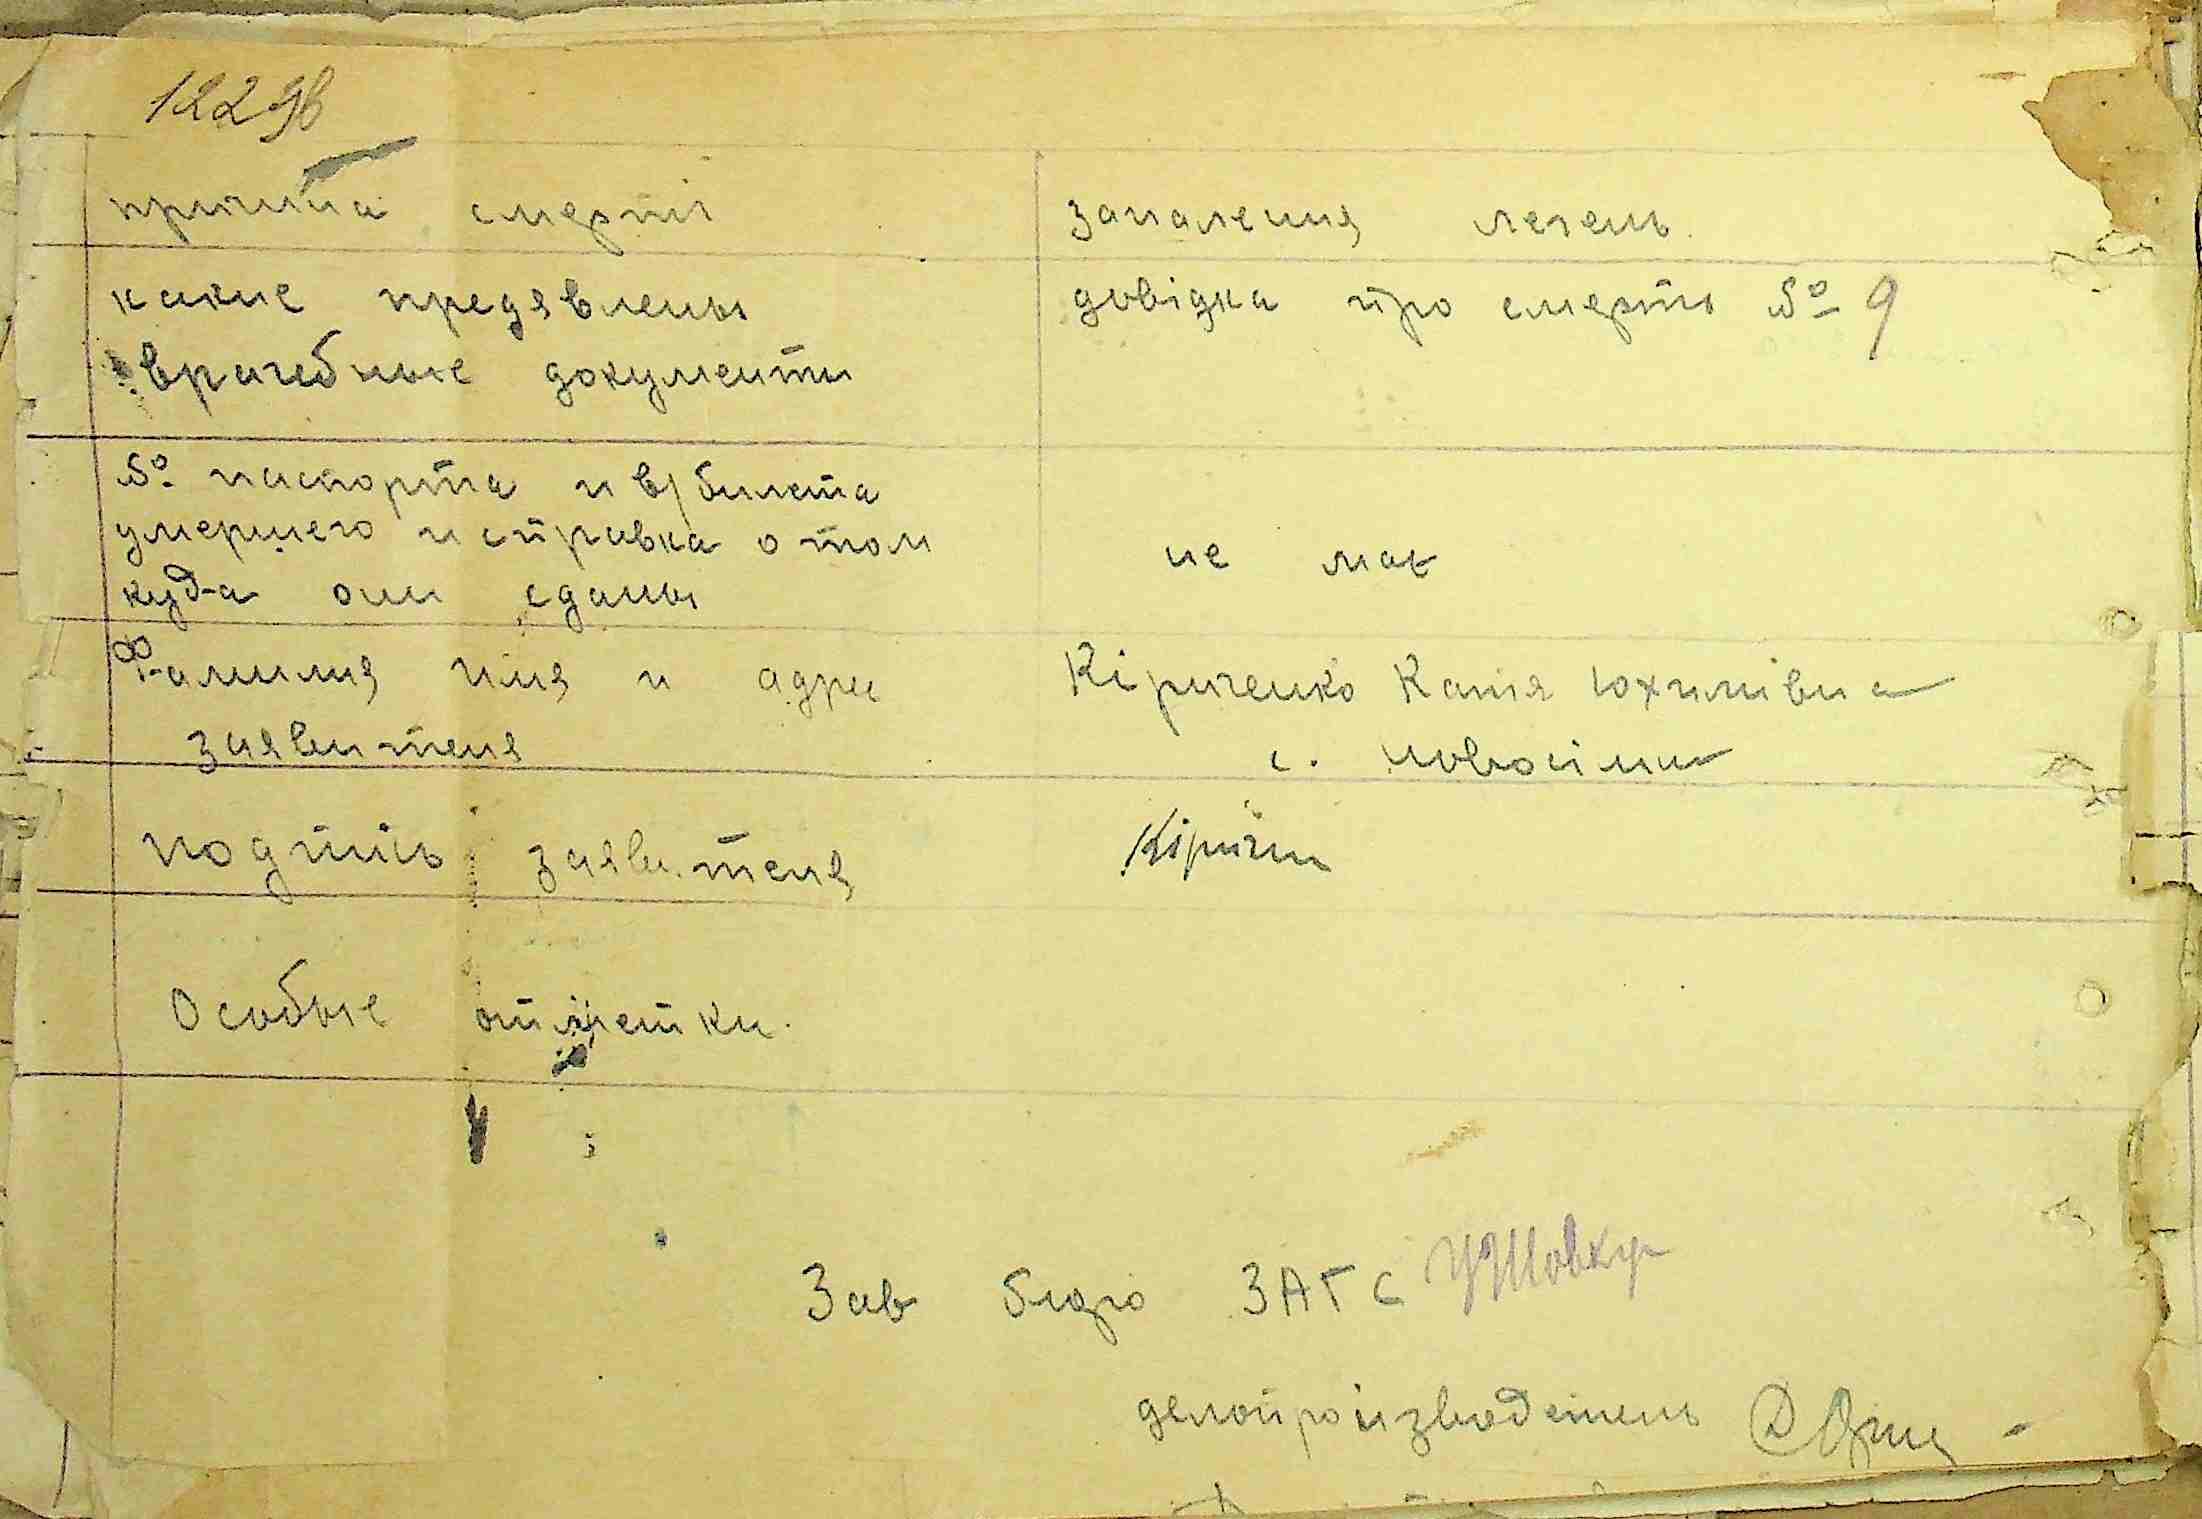 122 зв
причина смерті запалення легень
какие предявлены довідка про смерть № 9
врачебные документи
№ паспорта и в/билета
умершего и справка о том не має
куда они сданы
Фамилия имя и адрес Кіриченко Катя Юхимівна
заявителя с. Новосілки
подпись заявителя
Особые отметки.
Зав бюро ЗАГС
делопроизводетель